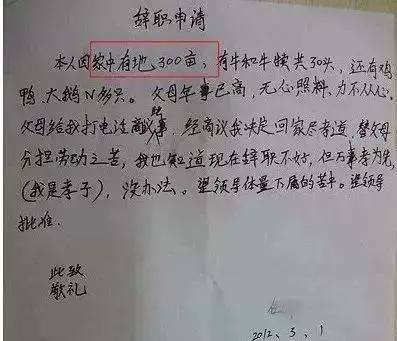 辞职申请
本人因家中有地300亩，有牛和牛犊共30头，还有鸡
鸭、大鹅N多只。父母年事已高，无心照料、力不从心。
父母给我打电话商议事，经商议我决定回家尽孝道，替父母
分担劳动之苦，我也知道现在辞职不好，但万事孝为先，
(我是孝子)，没办法。望领导体量下属的苦中。望领导
批准.
此致
敬礼
2012、3、1